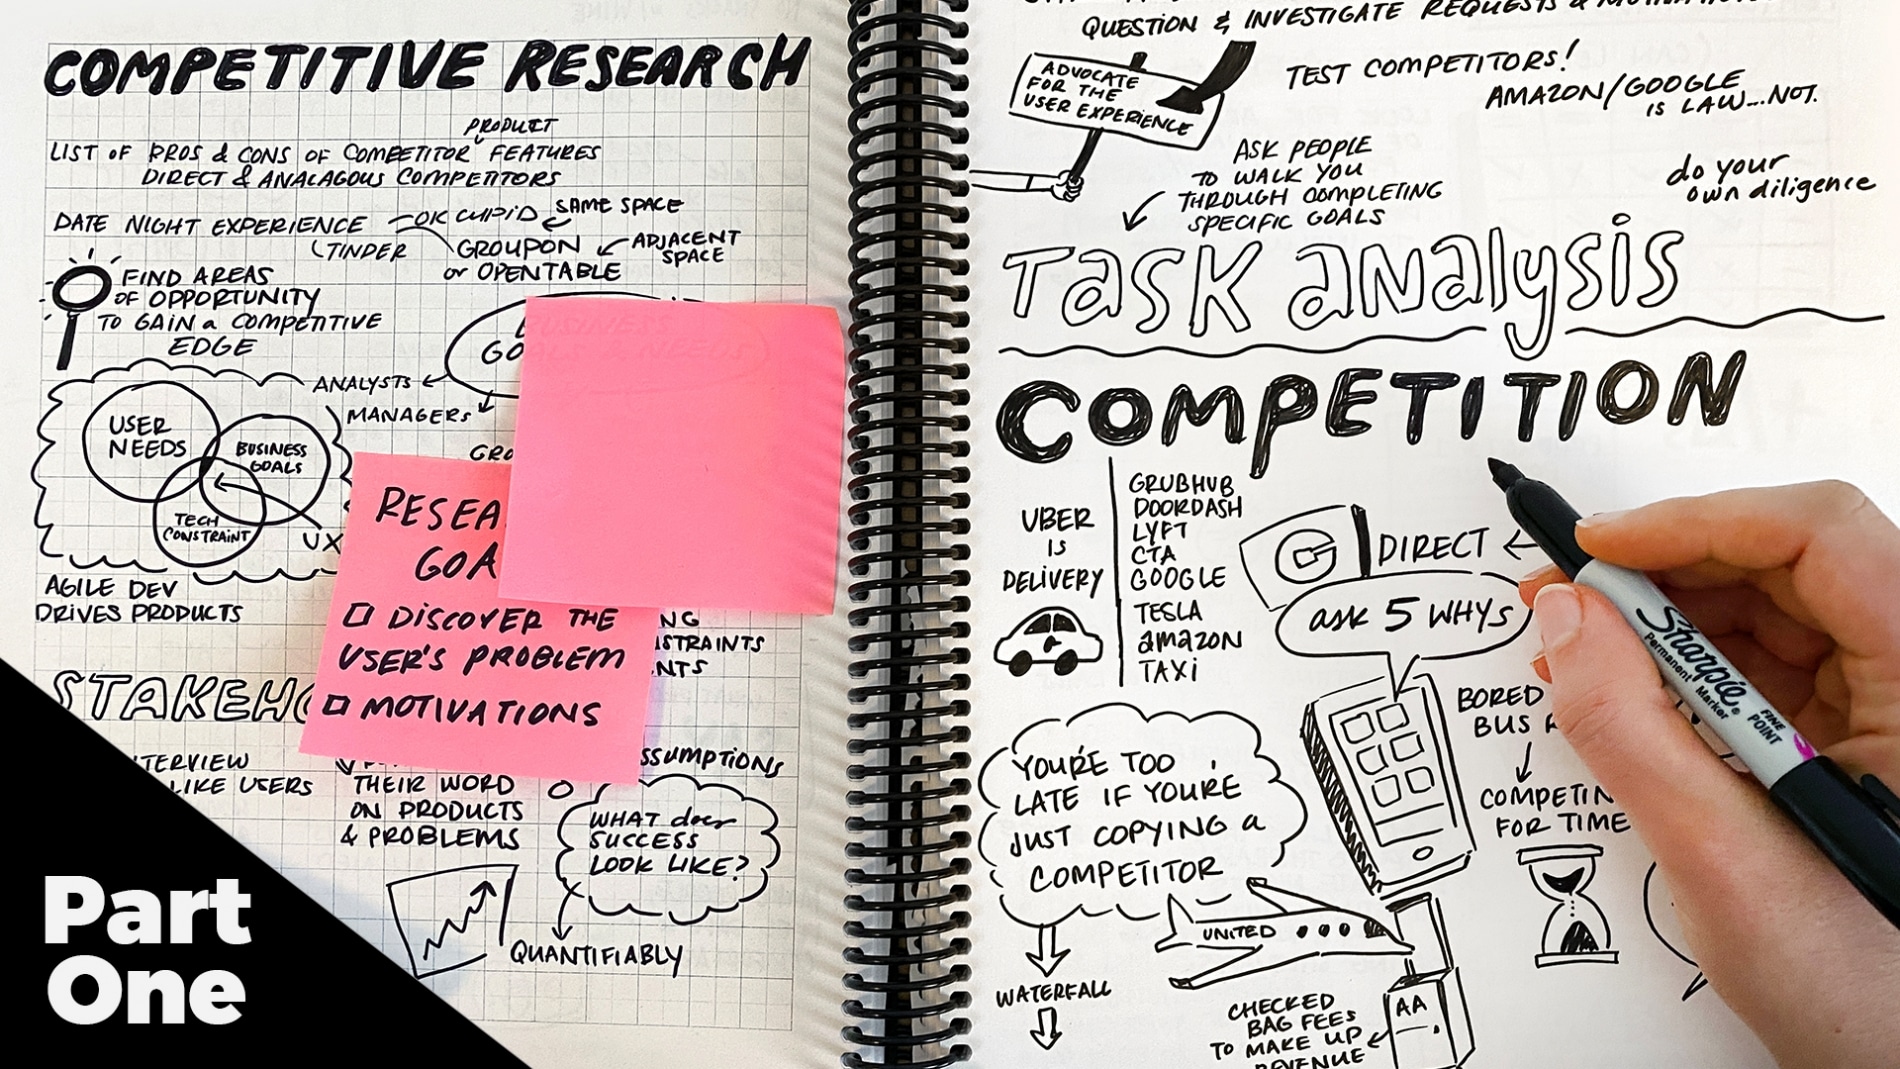 COMPETITIVE RESEARCH
PRODUCT
LIST OF PROS & CONS OF COMPETITOR FEATURES
DIRECT & ANALAGOUS COMPETITORS
DATE NIGHT EXPERIENCE
OK CUPID
SAME SPACE
TINDER
GROUPON
or OPENTABLE
ADJACENT
SPACE
FIND AREAS
OF OPPORTUNITY
TO GAIN a COMPETITIVE
EDGE
ANALYSTS
MANAGERS
USER
NEEDS
BUSINESS
GOALS
TECH
CONSTRAINT
UX
AGILE DEV
DRIVES PRODUCTS
RESEA
GOA
DISCOVER THE
USER'S PROBLEM
MOTIVATIONS
NG
STRAINTS
NTS
STAKEHO
TERVIEW
LIKE USERS
THEIR WORD
ON PRODUCTS
& PROBLEMS
SSUMPTIONS
WHAT does
SUCCESS
LOOK LIKE?
QUANTIFIABLY
Part
One
QUESTION & INVESTIGATE REQUESTS &
ADVOCATE
FOR THE
USER EXPERIENCE
TEST COMPETITORS!
AMAZON/GOOGLE
IS LAW...NOT.
ASK PEOPLE
TO WALK YOU
THROUGH COMPLETING
SPECIFIC GOALS
do your
own diligence
Task analysis
COMPETITION
UBER
IS
DELIVERY
GRUBHUB
DOORDASH
LYFT
CTA
GOOGLE
TESLA
amazon
TAXI
DIRECT
ask 5 WHYs
BORED
BUS
COMPETIN
FOR TIME
YOU'RE TOO
LATE IF YOU'RE
JUST COPYING a
COMPETITOR
UNITED
WATERFALL
CHECKED
BAG FEES
TO MAKE UP
REVENUE
AA
Sharpie
Permanent Marker
FINE
POINT